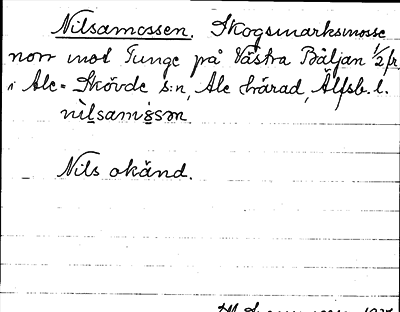 Nilsamossen. Skogsmarksmosse
norr mot Tunge på Västra Båljan 1/2 fr.
i Ale-Skövde s:n, Ale härad, Älfsb. l.
nìl̥samòsən
Nils okänd.